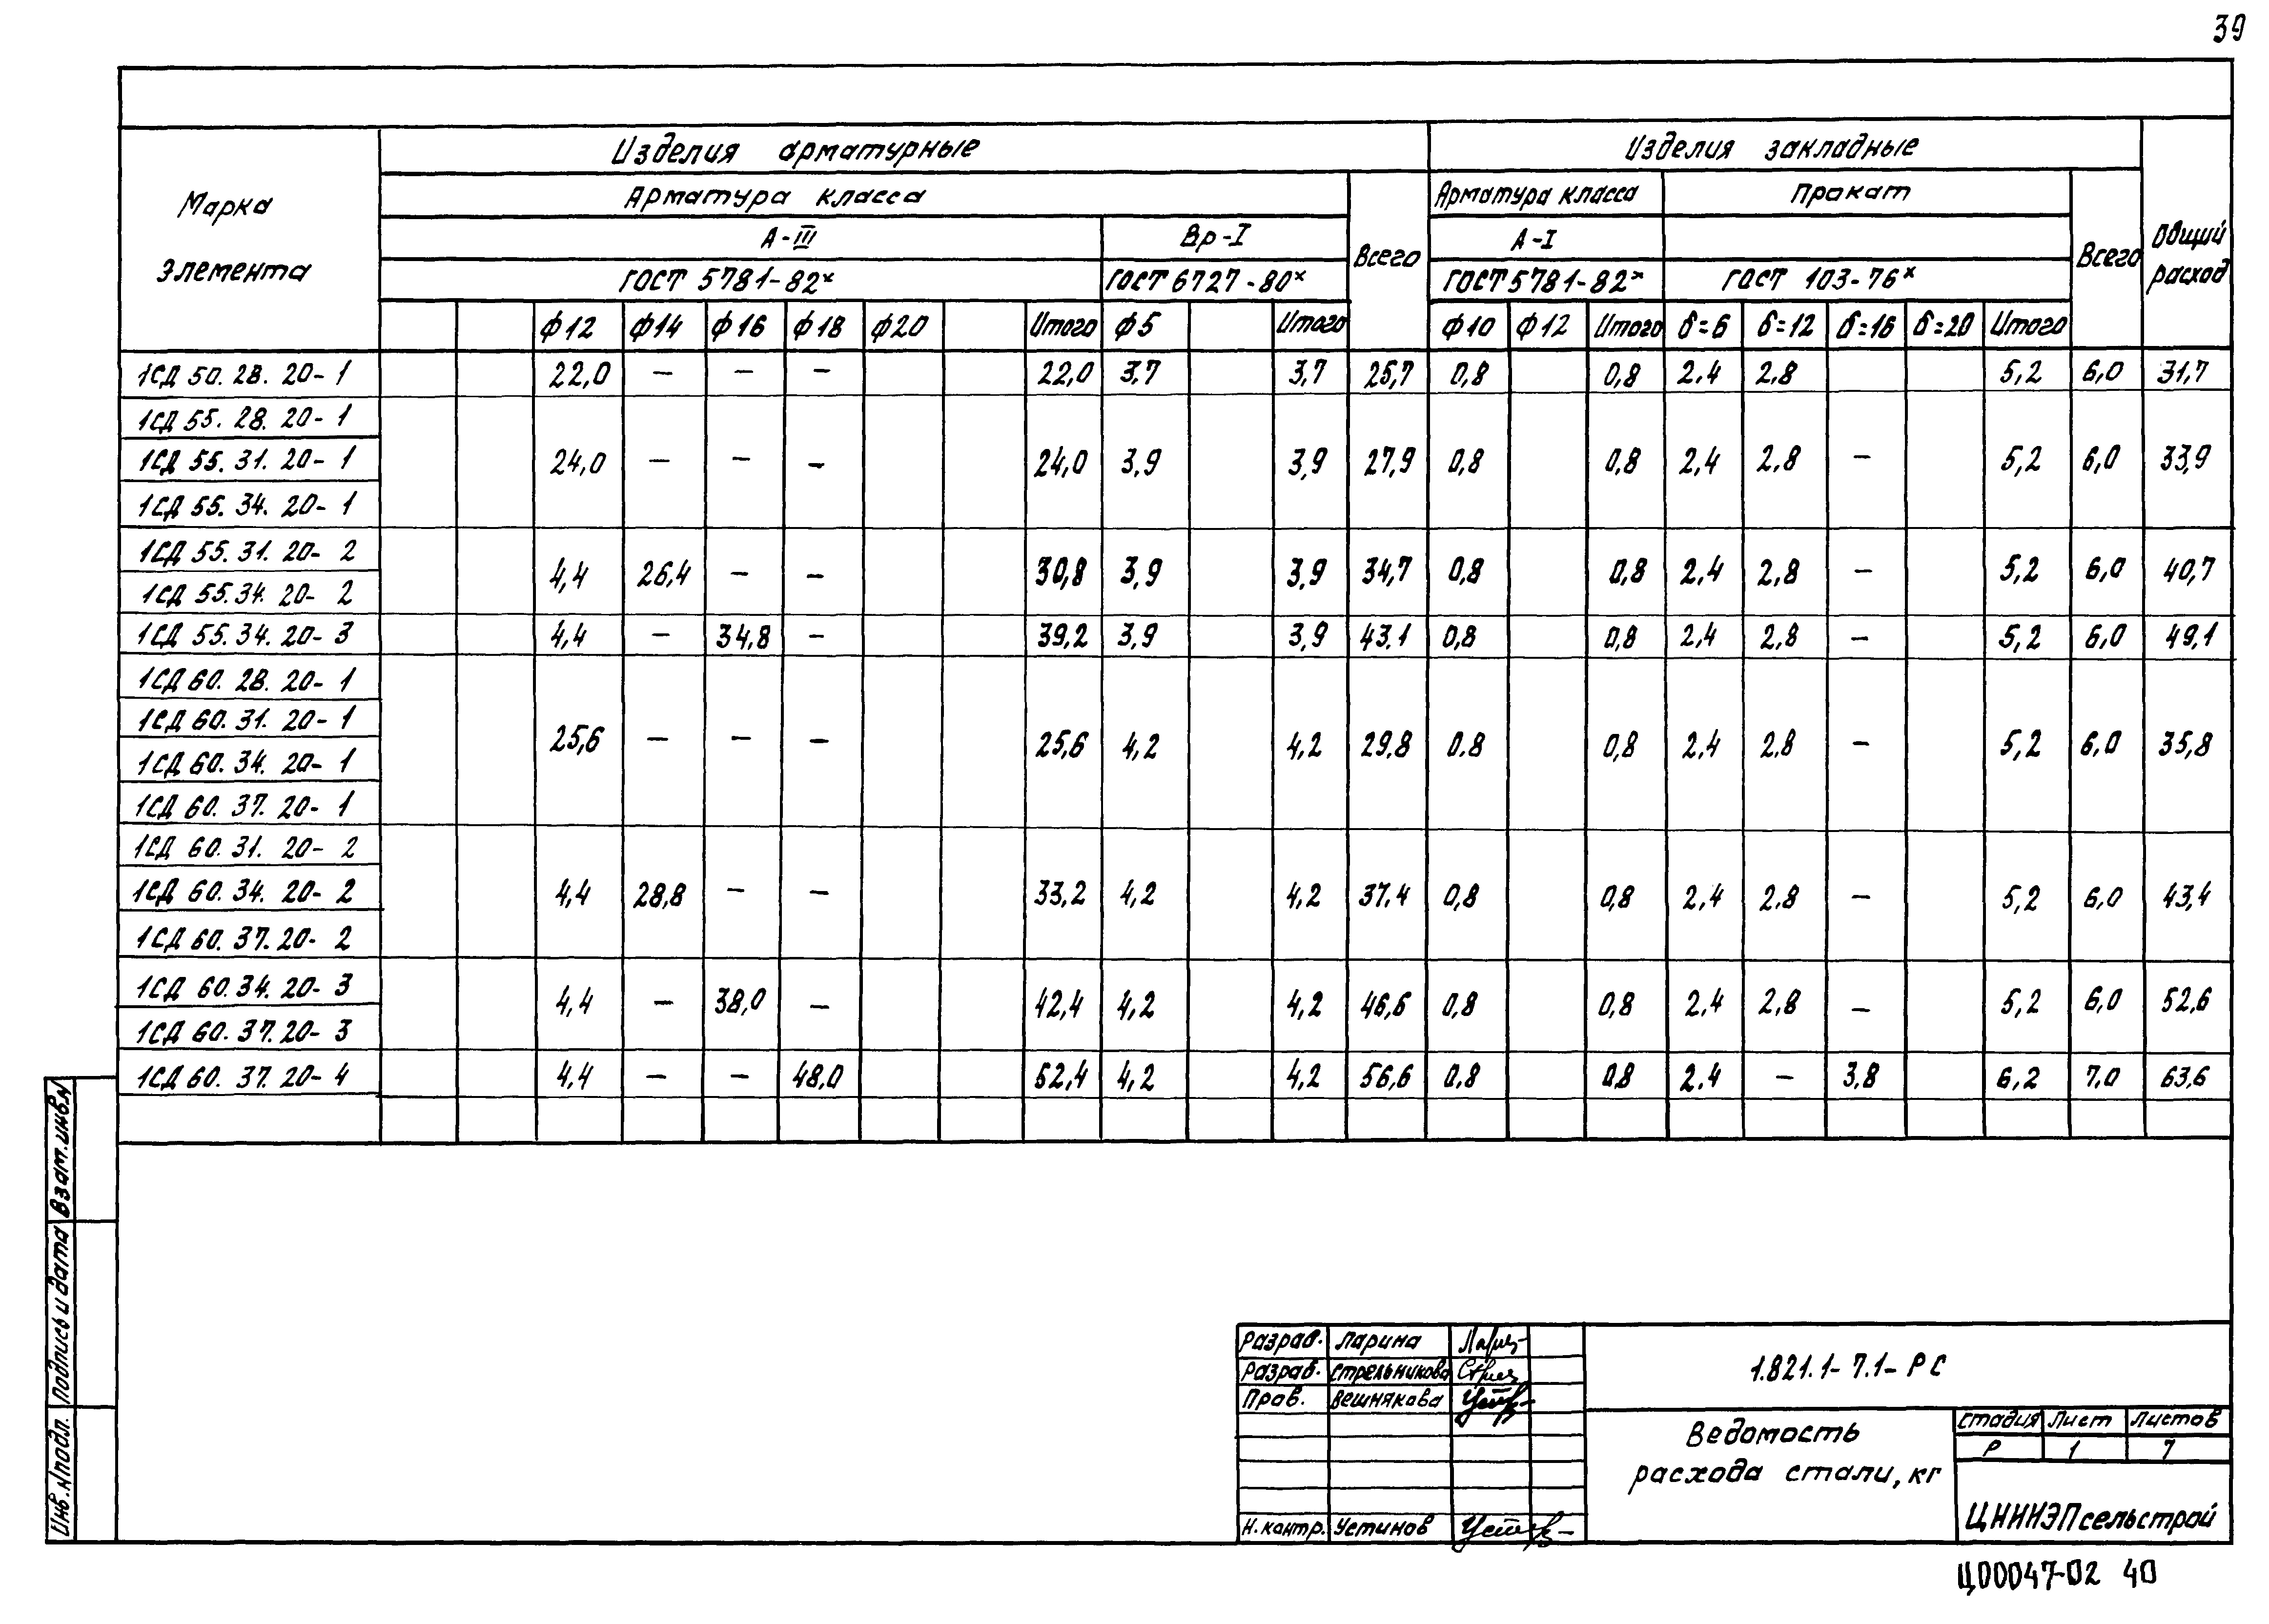 39
Изделия арматурные Изделия закладные
Марка элемента Арматура класса Всего Арматура класса Прокат Всего Общий расход
А-III Вр-I А-I
ГОСТ 5781-82* ГОСТ 6727-80* ГОСТ 5781-82* ГОСТ 103-76*
ф12 ф14 ф16 ф18 ф20 Итого ф5 Итого ф10 ф12 Итого δ=6 δ=12 δ=16 δ=20 Итого
1СД 50.28.20-1 22,0 – – – 22,0 3,7 3,7 25,7 0,8 0,8 2,4 2,8 5,2 6,0 31,7
1СД 55.28.20-1
1СД 55.31.20-1 24,0 – – – 24,0 3,9 3,9 27,9 0,8 0,8 2,4 2,8 – 5,2 6,0 33,9
1СД 55.34.20-1
1СД 55.31.20-2
4,4 26,4 – – 30,8 3,9 3,9 34,7 0,8 0,8 2,4 2,8 – 5,2 6,0 40,7
1СД 55.34.20-2
1СД 55.34.20-3 4,4 – 34,8 – 39,2 3,9 3,9 43,1 0,8 0,8 2,4 2,8 – 5,2 6,0 49,1
1СД 60.28.20-1
1СД 60.31.20-1
25,6 – – – 25,6 4,2 4,2 29,8 0,8 0,8 2,4 2,8 – 5,2 6,0 35,8
1СД 60.34.20-1
1СД 60.37.20-1
1СД 60.31.20-2
1СД 60.34.20-2 4,4 28,8 – – 33,2 4,2 4,2 37,4 0,8 0,8 2,4 2,8 – 5,2 6,0 43,4
1СД 60.37.20-2
1СД 60.34.20-3
4,4 – 38,0 – 42,4 4,2 4,2 46,6 0,8 0,8 2,4 2,8 – 5,2 6,0 52,6
1СД 60.37.20-3
1СД 60.37.20-4 4,4 – – 48,0 52,4 4,2 4,2 56,6 0,8 0,8 2,4 – 3,8 6,2 7,0 63,6
Взам.инв.№
Подпись и дата
Инв.№подл.
Разраб. Ларина
Разраб. Стрельникова
Пров. Вешнякова
Н.контр. Устинов
1.821.1-7.1-РС
Ведомость
расхода стали, кг
Стадия Лист Листов
Р 1 7
ЦНИИЭПсельстрой
Ц00047-02 40